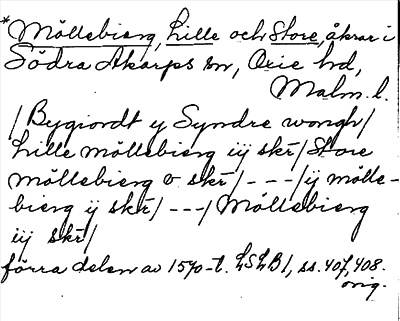 *Möllebierg, Lille och Store, åkrar i
Södra Åkarps sn, Oxie hd,
Malm. l.
/Bygiordt y Syndre wongh/
Lille möllebierg iij skr̄/Store
möllebierg 0 skr̄/---/ij mölle-
bierg ij skr̄/---/Möllebierg
iij skr̄/
förra delen av 1570-t. LSLB1, ss. 407, 408.
orig.